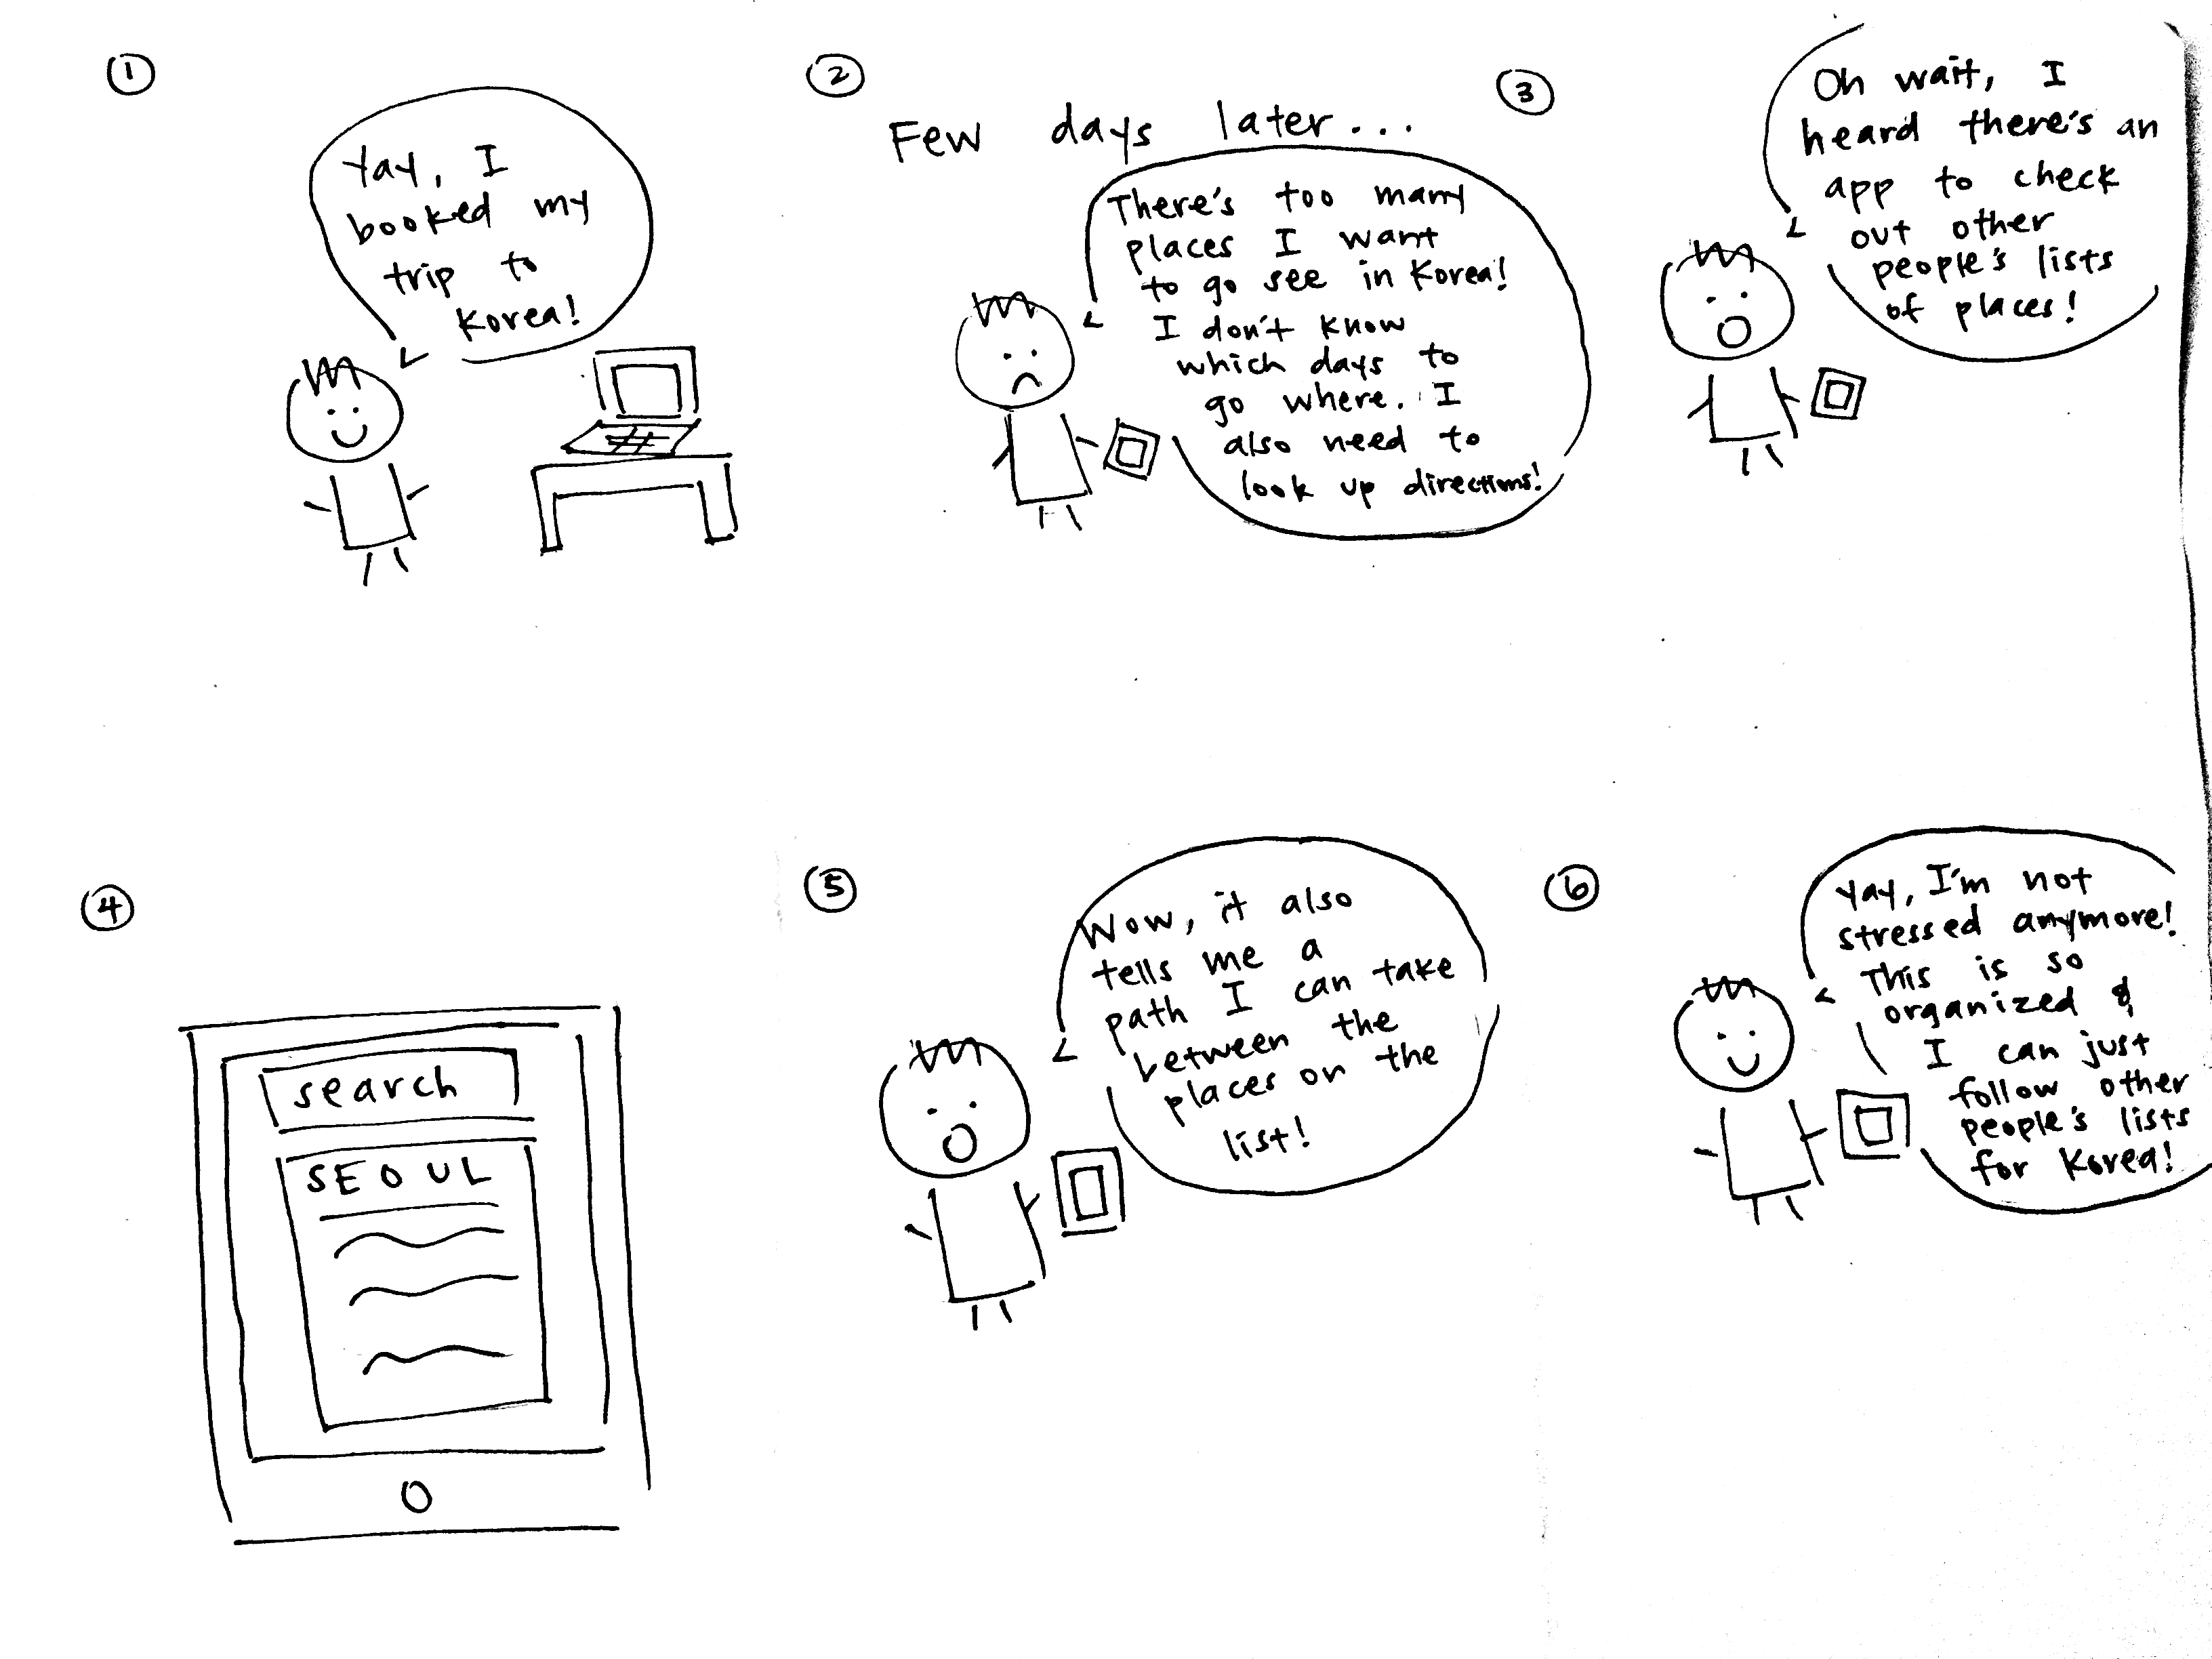 1
Yay, I
booked my
trip to
Korea!
2
Few days later...
There's too many
places I want
to go see in Korea!
I don't know
which days to
go where. I
also need to
look up directions!
3
Oh wait, I
heard there's an
app to check
out other
people's lists
of places!
4
search
SEOUL
5
Wow, it also
tells me a
path I can take
between the
places on the
list!
6
Yay, I'm not
stressed anymore!
This is so
organized &
I can just
follow other
people's lists
for Korea!